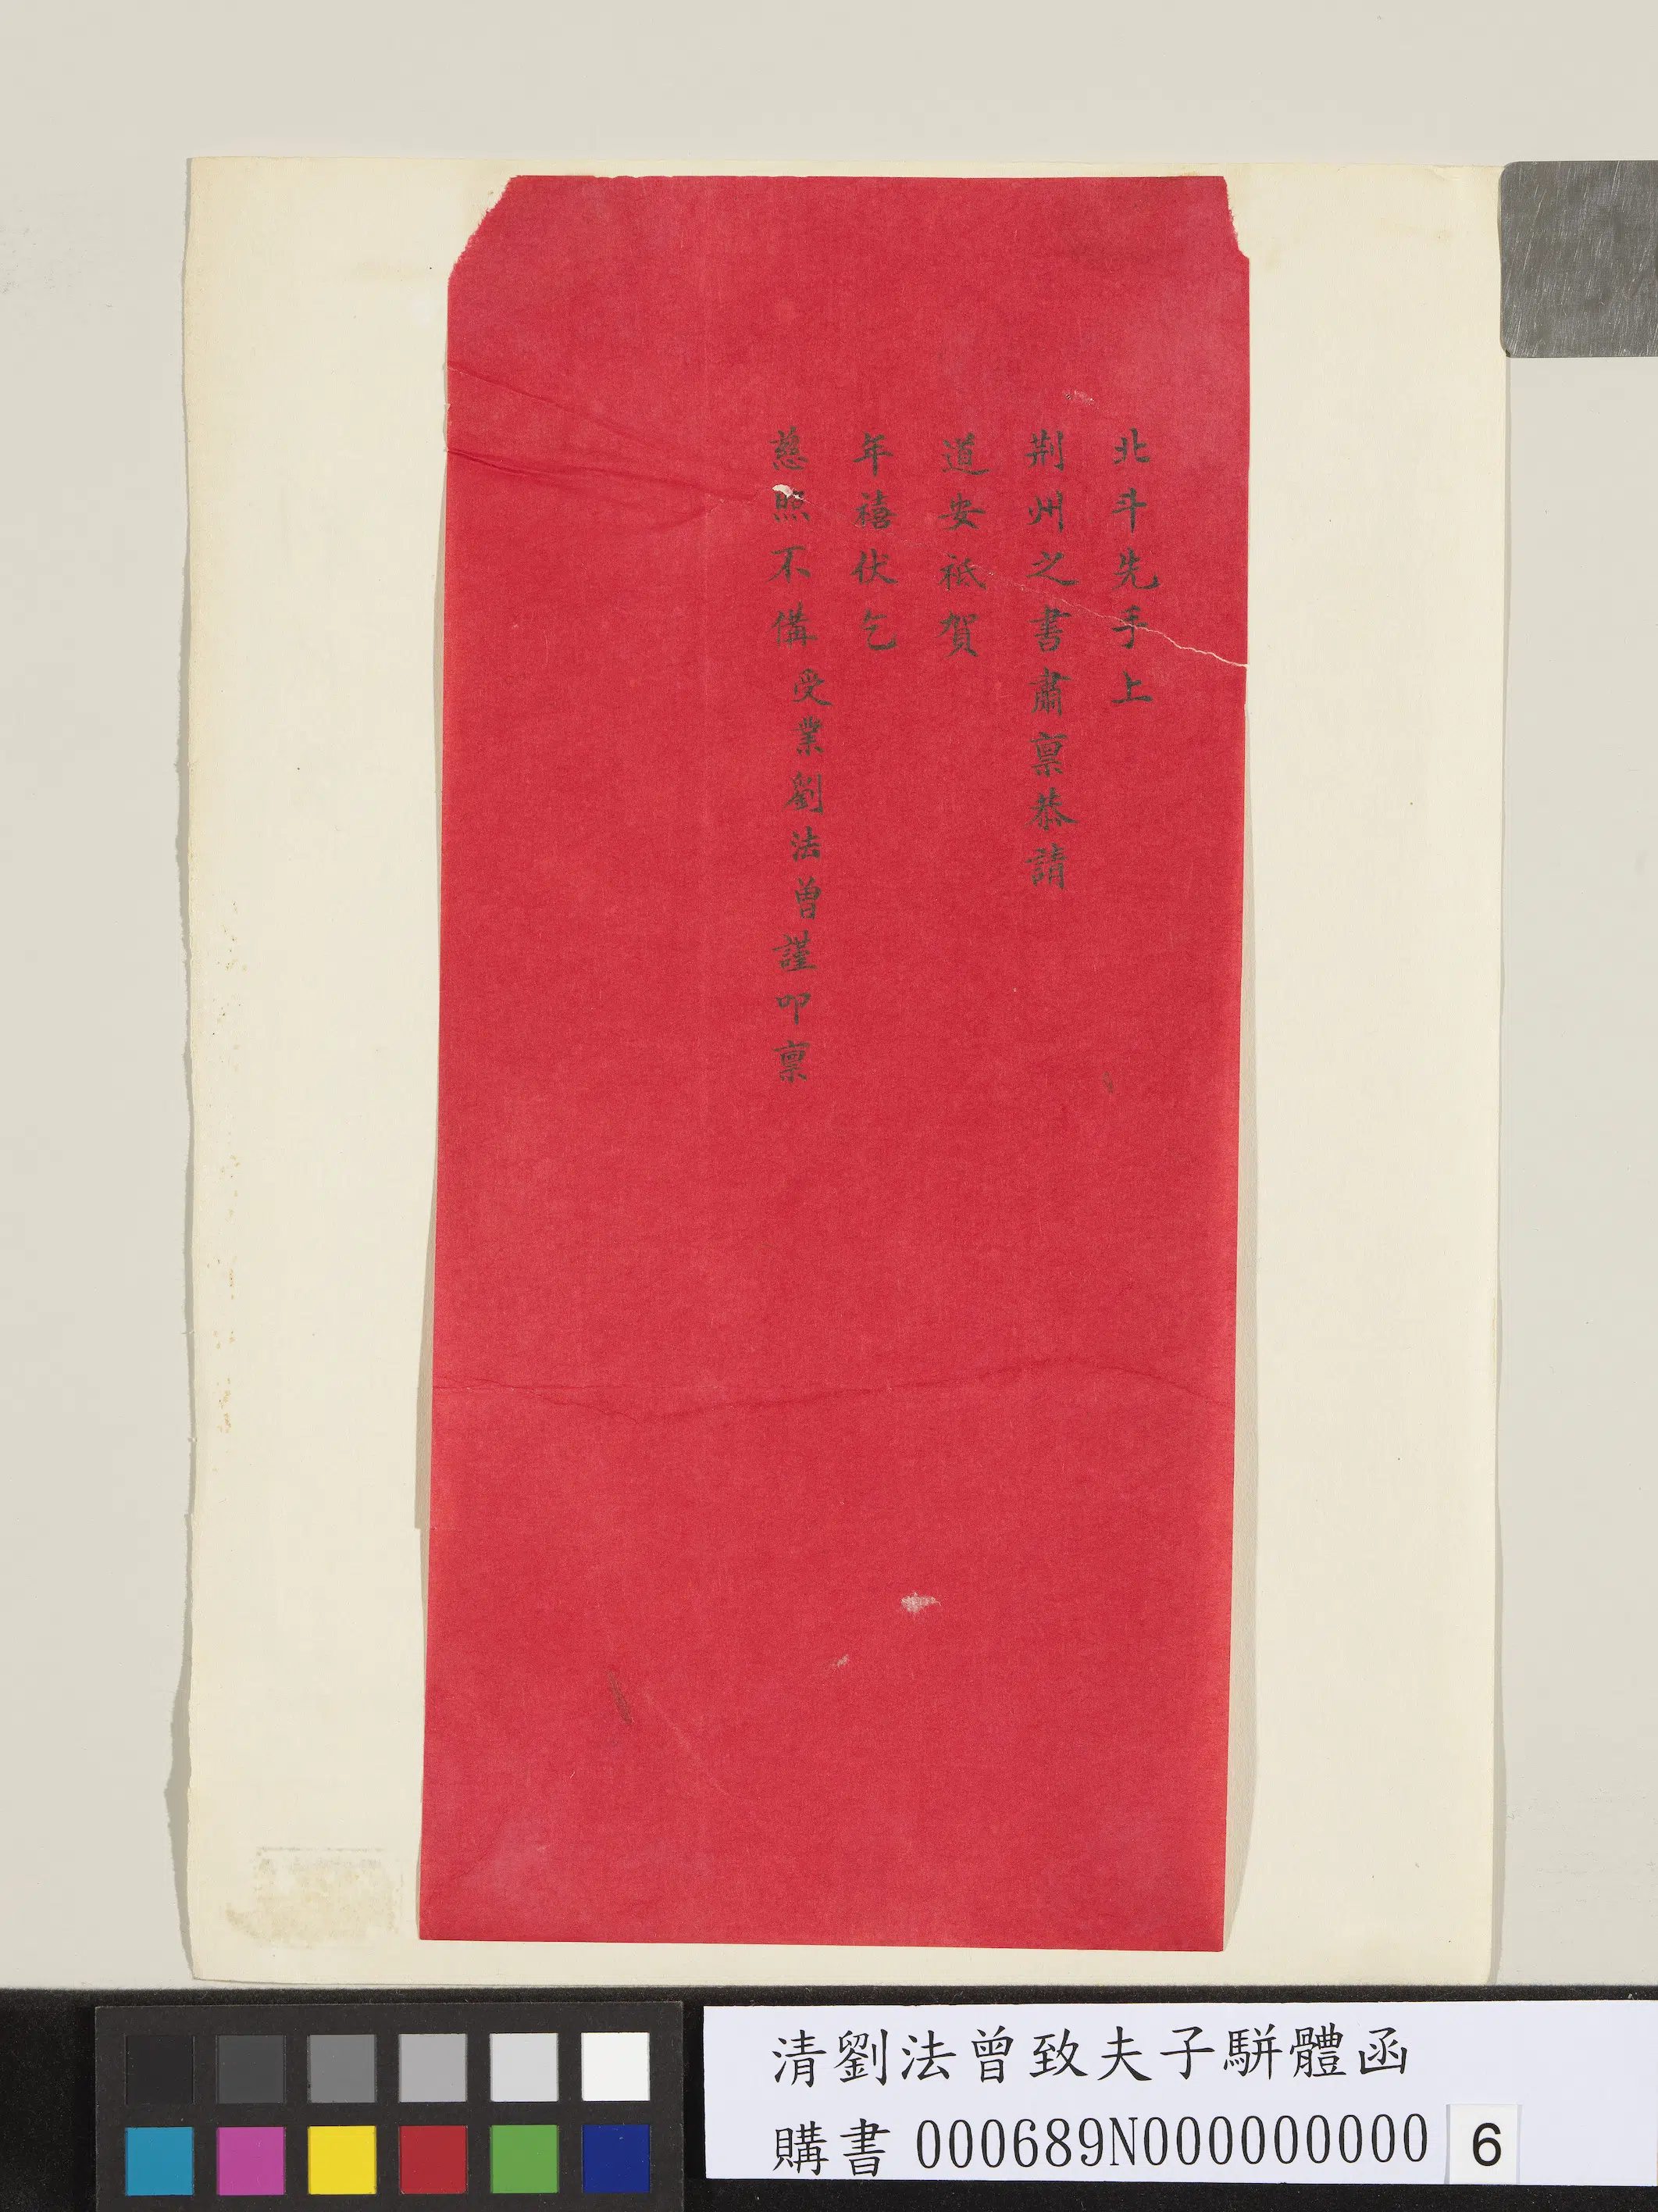 北斗先手上
荆州之書肅禀恭請
道安祗賀
年禧伏乞
慈照不備受業劉法曾謹叩禀
清劉法曾致夫子駢體函
購書 000689N000000000
6